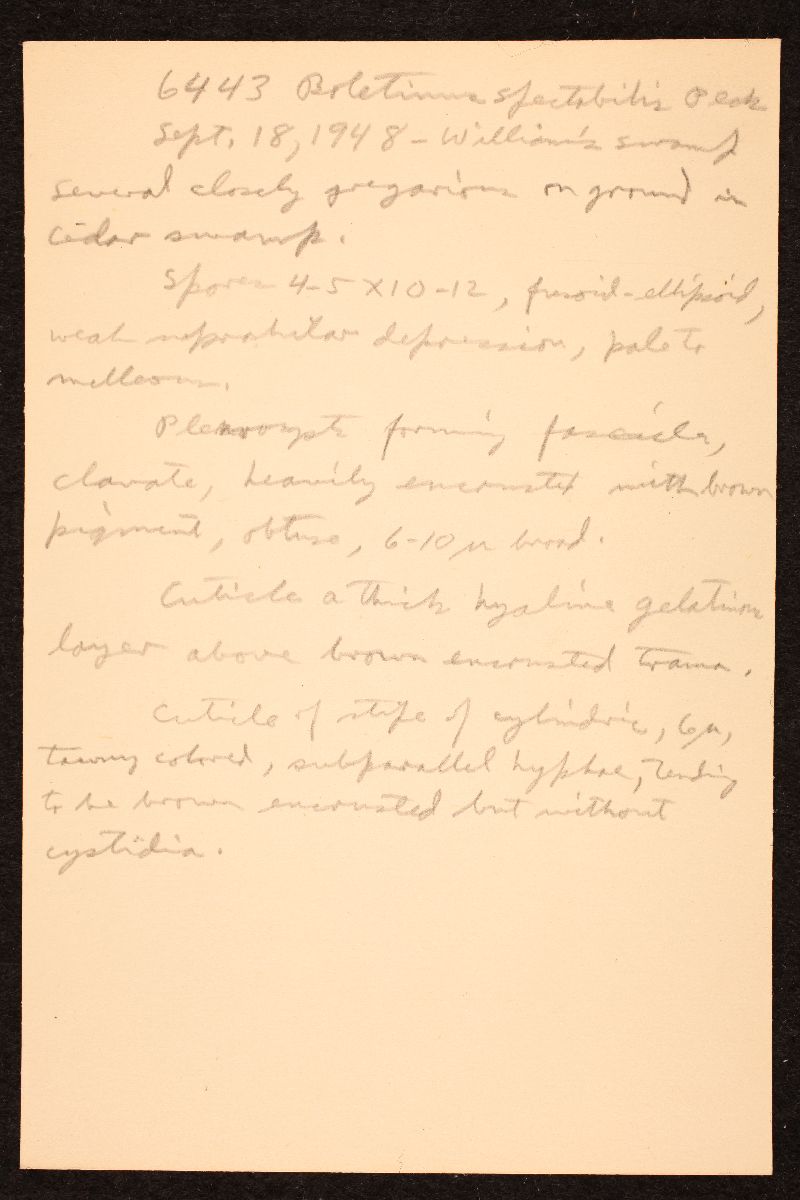 6443 Boletinus spectabilis Peck
Sept. 18, 1948 - William's swamp
several closely gregarious on ground in
cedar swamp.
Spores 4-5 X 10-12, fusoid-ellipsoid,
weak suprahilar depression, pale to
melleous.
Pleurocysts forming fascicles,
clavate, heavily encrusted with brown
pigment, obtuse, 6-10 µ broad.
Cuticle a thick hyaline gelatinous
layer above brown encrusted trama.
Cuticle of stipe of cylindric, 6µ,
tawny colored, subparallel hyphae, tending
to be brown encrusted but without
cystidia.